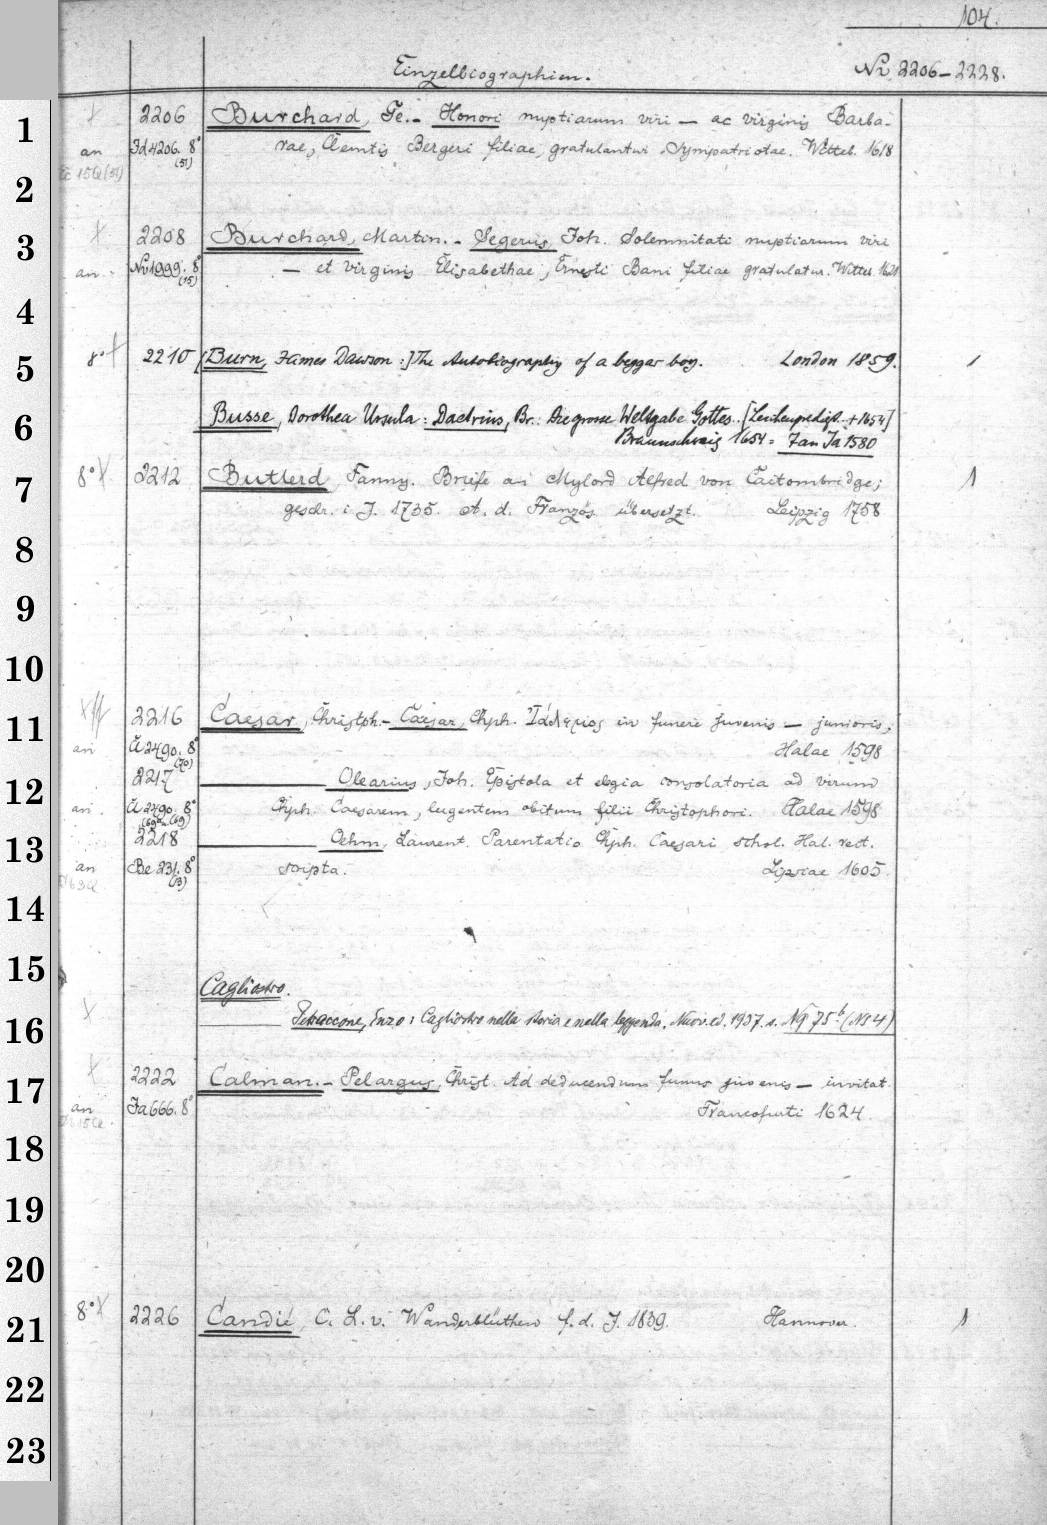 104.
Einzelbiographien. Nr 2206–2228.
1 2206 Burchard, Ge.- Honori nuptiarum viri — ac virginis Barba-
an Id 4206. 8° (51) rae, Clemtis Bergeri filiae, gratulantur Sympatriotae. Witteb. 1618
2
3 2208 Burchard, Martin. - Segerus, Joh. Solemnitati nuptiarum viri
an. Nv 1999. 8° (15) — et virginis Elisabethae, Ernesti Bani filiae gratulatur. Witteb. 1621
4
5 8° 2210 [Burn, James Dawson:] The Autobiography of a beggar boy. London 1859. 1
6 Busse, Dorothea Ursula: Daetrius, Br.: Die grosse Weltgabe Gottes.. [Leichenpredigt. +1654]
Braunschweig 1654 = 7 an Ja 1580
7 8° 2212 Butlerd, Fanny. Briefe an Mylord Alfred von Caitombridge; 1
geschr. i. J. 1735. A. d. Französ. übersetzt. Leipzig 1758
8
9
10
11 2216 Caesar, Christph.- Caesar, Chph. Ἰάλεμος in funere juvenis — junioris,
an A 2490. 8° (70) Halae 1598
12 2217 Olearius, Joh. Epistola et elegia consolatoria ad virum
an. A 2490. 8° Chph. Caesarem, lugentem obitum filii Christophori. Halae 1598
13 2218 Oehm, Laurent. Parentatio Chph. Caesari schol. Hal. rect.
an Be 231. 8° (13) scripta. Lipsiae 1605.
14
15 Cagliostro.
16 Petraccone, Enzo: Cagliostro nella storia e nella leggenda. Nuov. ed. 1937. s. Ng 75b (NS 4)
17 2222 Calman. - Pelargus, Christ. Ad deducendum funus juvenis — invitat.
an Ja 666. 8° Francofurti 1624.
18
19
20
21 8° 2226 Candié, C. L. v. Wanderblüthen f. d. J. 1839. Hannover. 1
22
23